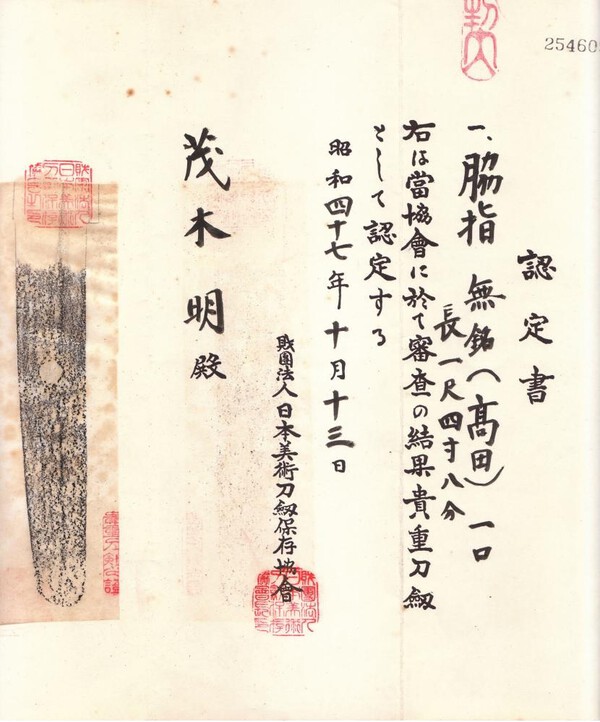 認定書
一、脇指 無銘(高田) 一口
長一尺四寸八分
右は當協會に於て審査の結果貴重刀劔
として認定する
昭和四十七年十月十三日
財團法人日本美術刀劔保存協會
茂木 明殿
25460